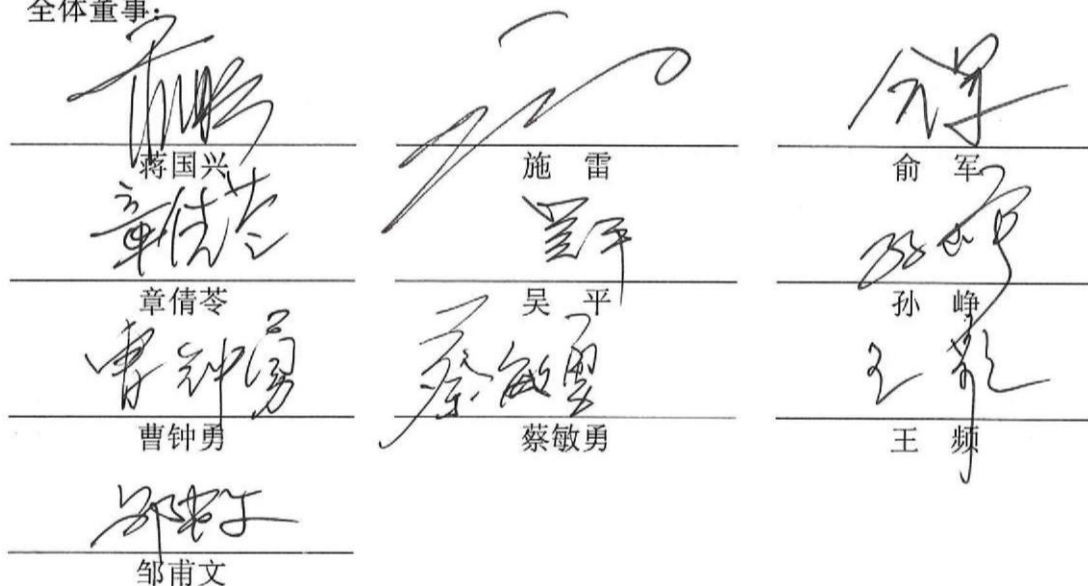 全体董事：
蒋国兴 施 雷 俞 军
章倩苓 吴 平 孙 峥
曹钟勇 蔡敏勇 王 频
邹甫文